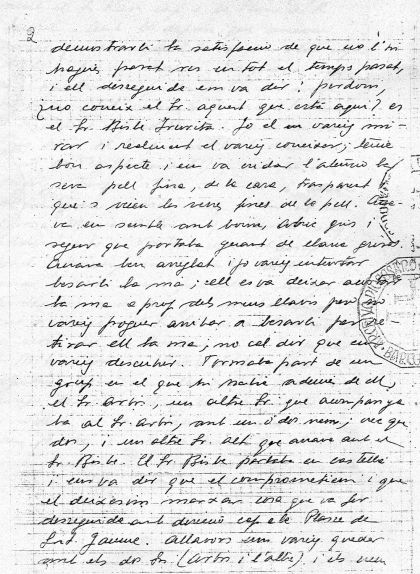 2
demostrarli la satisfacció de que no l'hi
hagués passat res en tot el temps passat,
i ell desseguida em va dir: perdoni,
¿no coneix el Sr. aquest que està aquí? es
el Sr. Bisbe Irurita. Jo el vareig mi-
rar i realment el vareig coneixer; tenia
bon aspecte i em va cridar l'atenció la
seva pell fina, de la cara, trasparent
que s veien les venes fines de la pell. Ana-
va en sembla amb boina, abric gris i
segur que portaba guant de llana gruixos.
Anava ben arreglat i jo vareig intentar
besarli la ma i ell es va deixar
la ma a prop dels meus llavis pero no
vareig poguer arribar a besarli per re-
tirar ell la ma, no cal dir que em
vareig descubrir. Formaba part de un
grup en el que hi havia ademes de ell,
el Sr. Artós, un altre Sr. que acompanya-
ba al Sr. Artós, amb un o dos nens, i vec que
dos, i un altre Sr. alt que anava amb el
Sr. Bisbe. El Sr. Bisbe parlaba en castellà
i ens va dir que el comprometiem i que
el deixesim marxar cosa que va fer
desseguida amb direcció cap a la Plassa de
St. Jaume. Allavors em vareig quedar
amb els dos Srs. (Artós i l'altre) i els nens